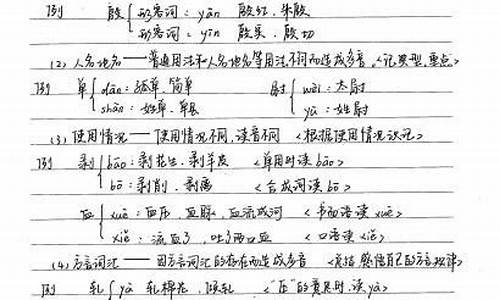 例 殷 { 形容词：yān 殷红、朱殷
形容词：yīn 殷实、殷切
(2) 人名地名——普通用法和人名地名等用法不同而造成多音 <记典型、重点>
例 单 { dān：孤单、简单 尉 { wèi：太尉
shàn：姓单、单县 yù：姓尉
(3) 使用情况——使用情况不同，读音不同 <根据使用情况识记>
例 剥 { bāo：剥花生、剥羊皮 <单用时读bāo>
bō：剥削、剥离 <合成词读bō>
血 { xuè：血压、血脉、血流成河 <书面语读xuè>
xiě：流血了、吐了两口血 <口语读xiě>
(4) 方言词汇——因方言词汇的存在而造成多音 <总结感悟自己的方言规律>
例 轧 { yà 轧棉花、倾轧 <“压”的意思时，读yà>